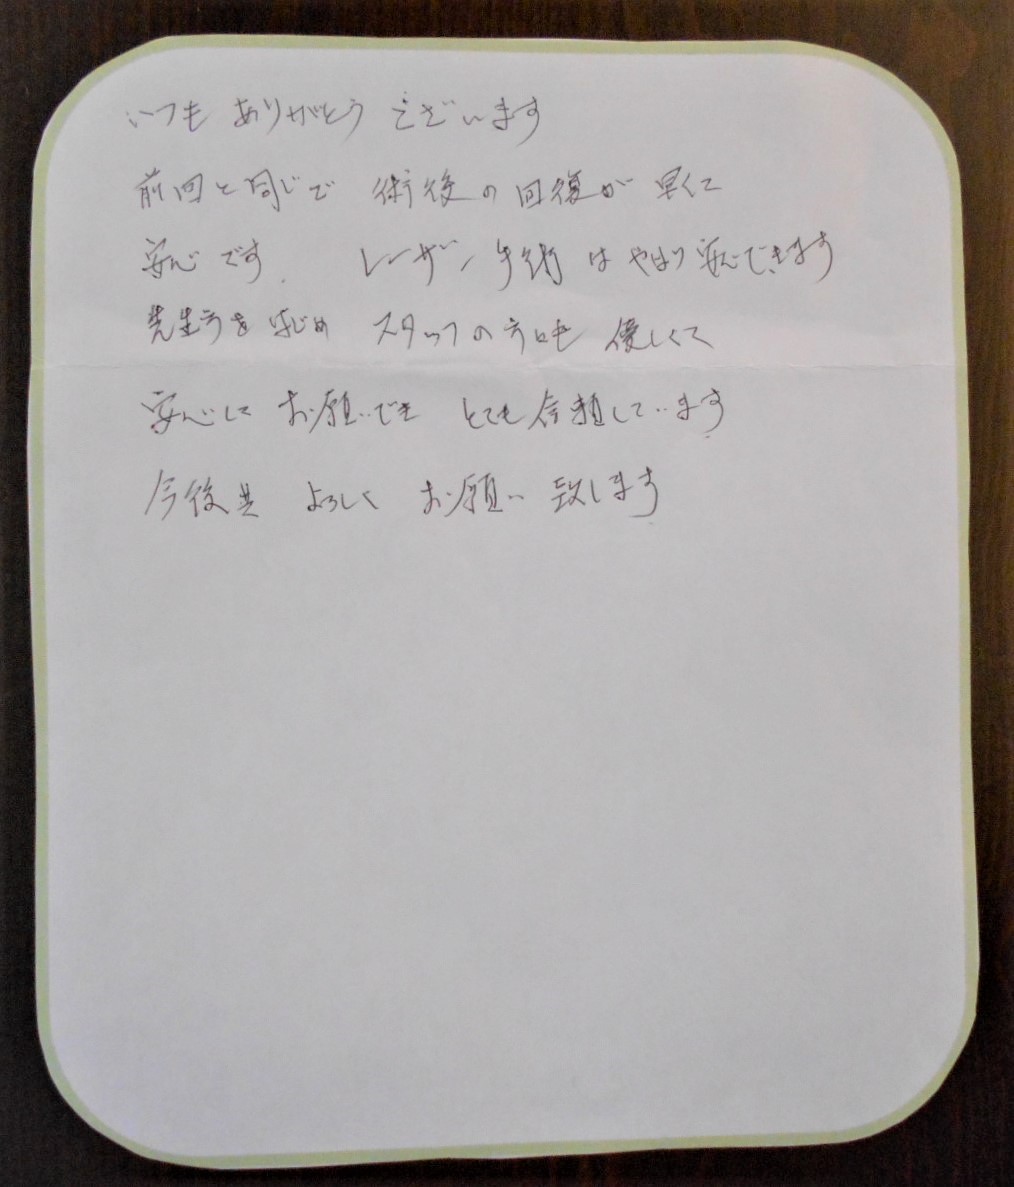 いつも ありがとう ございます
前回と同じで 術後の回復が 早くて
安心です. レーザー手術は やはり安心できます
先生方をはじめ スタッフの方も 優しくて
安心して お願いでき とても信頼しています
今後共 よろしく お願い 致します